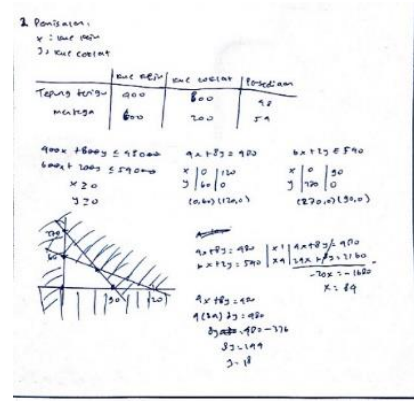 2. Pemisalan:
x : kue
y : kue coklat
kue | kue coklat | Persediaan
Tepung terigu | 400 | 800 | 48
mentega | 600 | 200 | 54
400x + 800y ≤ 48000
600x + 200y ≤ 54000
x ≥ 0
y ≥ 0
4x + 8y = 480
x | 0 | 120
y | 60 | 0
(0,60) (120,0)
6x + 2y ≤ 540
x | 0 | 90
y | 270 | 0
(270,0) (90,0)
270
60
90 120
4x + 8y = 480 | x1 | 4x + 8y = 480
6x + 2y = 540 | x4 | 24x + 8y = 2160
-20x = -1680
x = 84
4x + 8y = 480
4(84) 8y = 480
8y = 480 - 336
8y = 144
y = 18